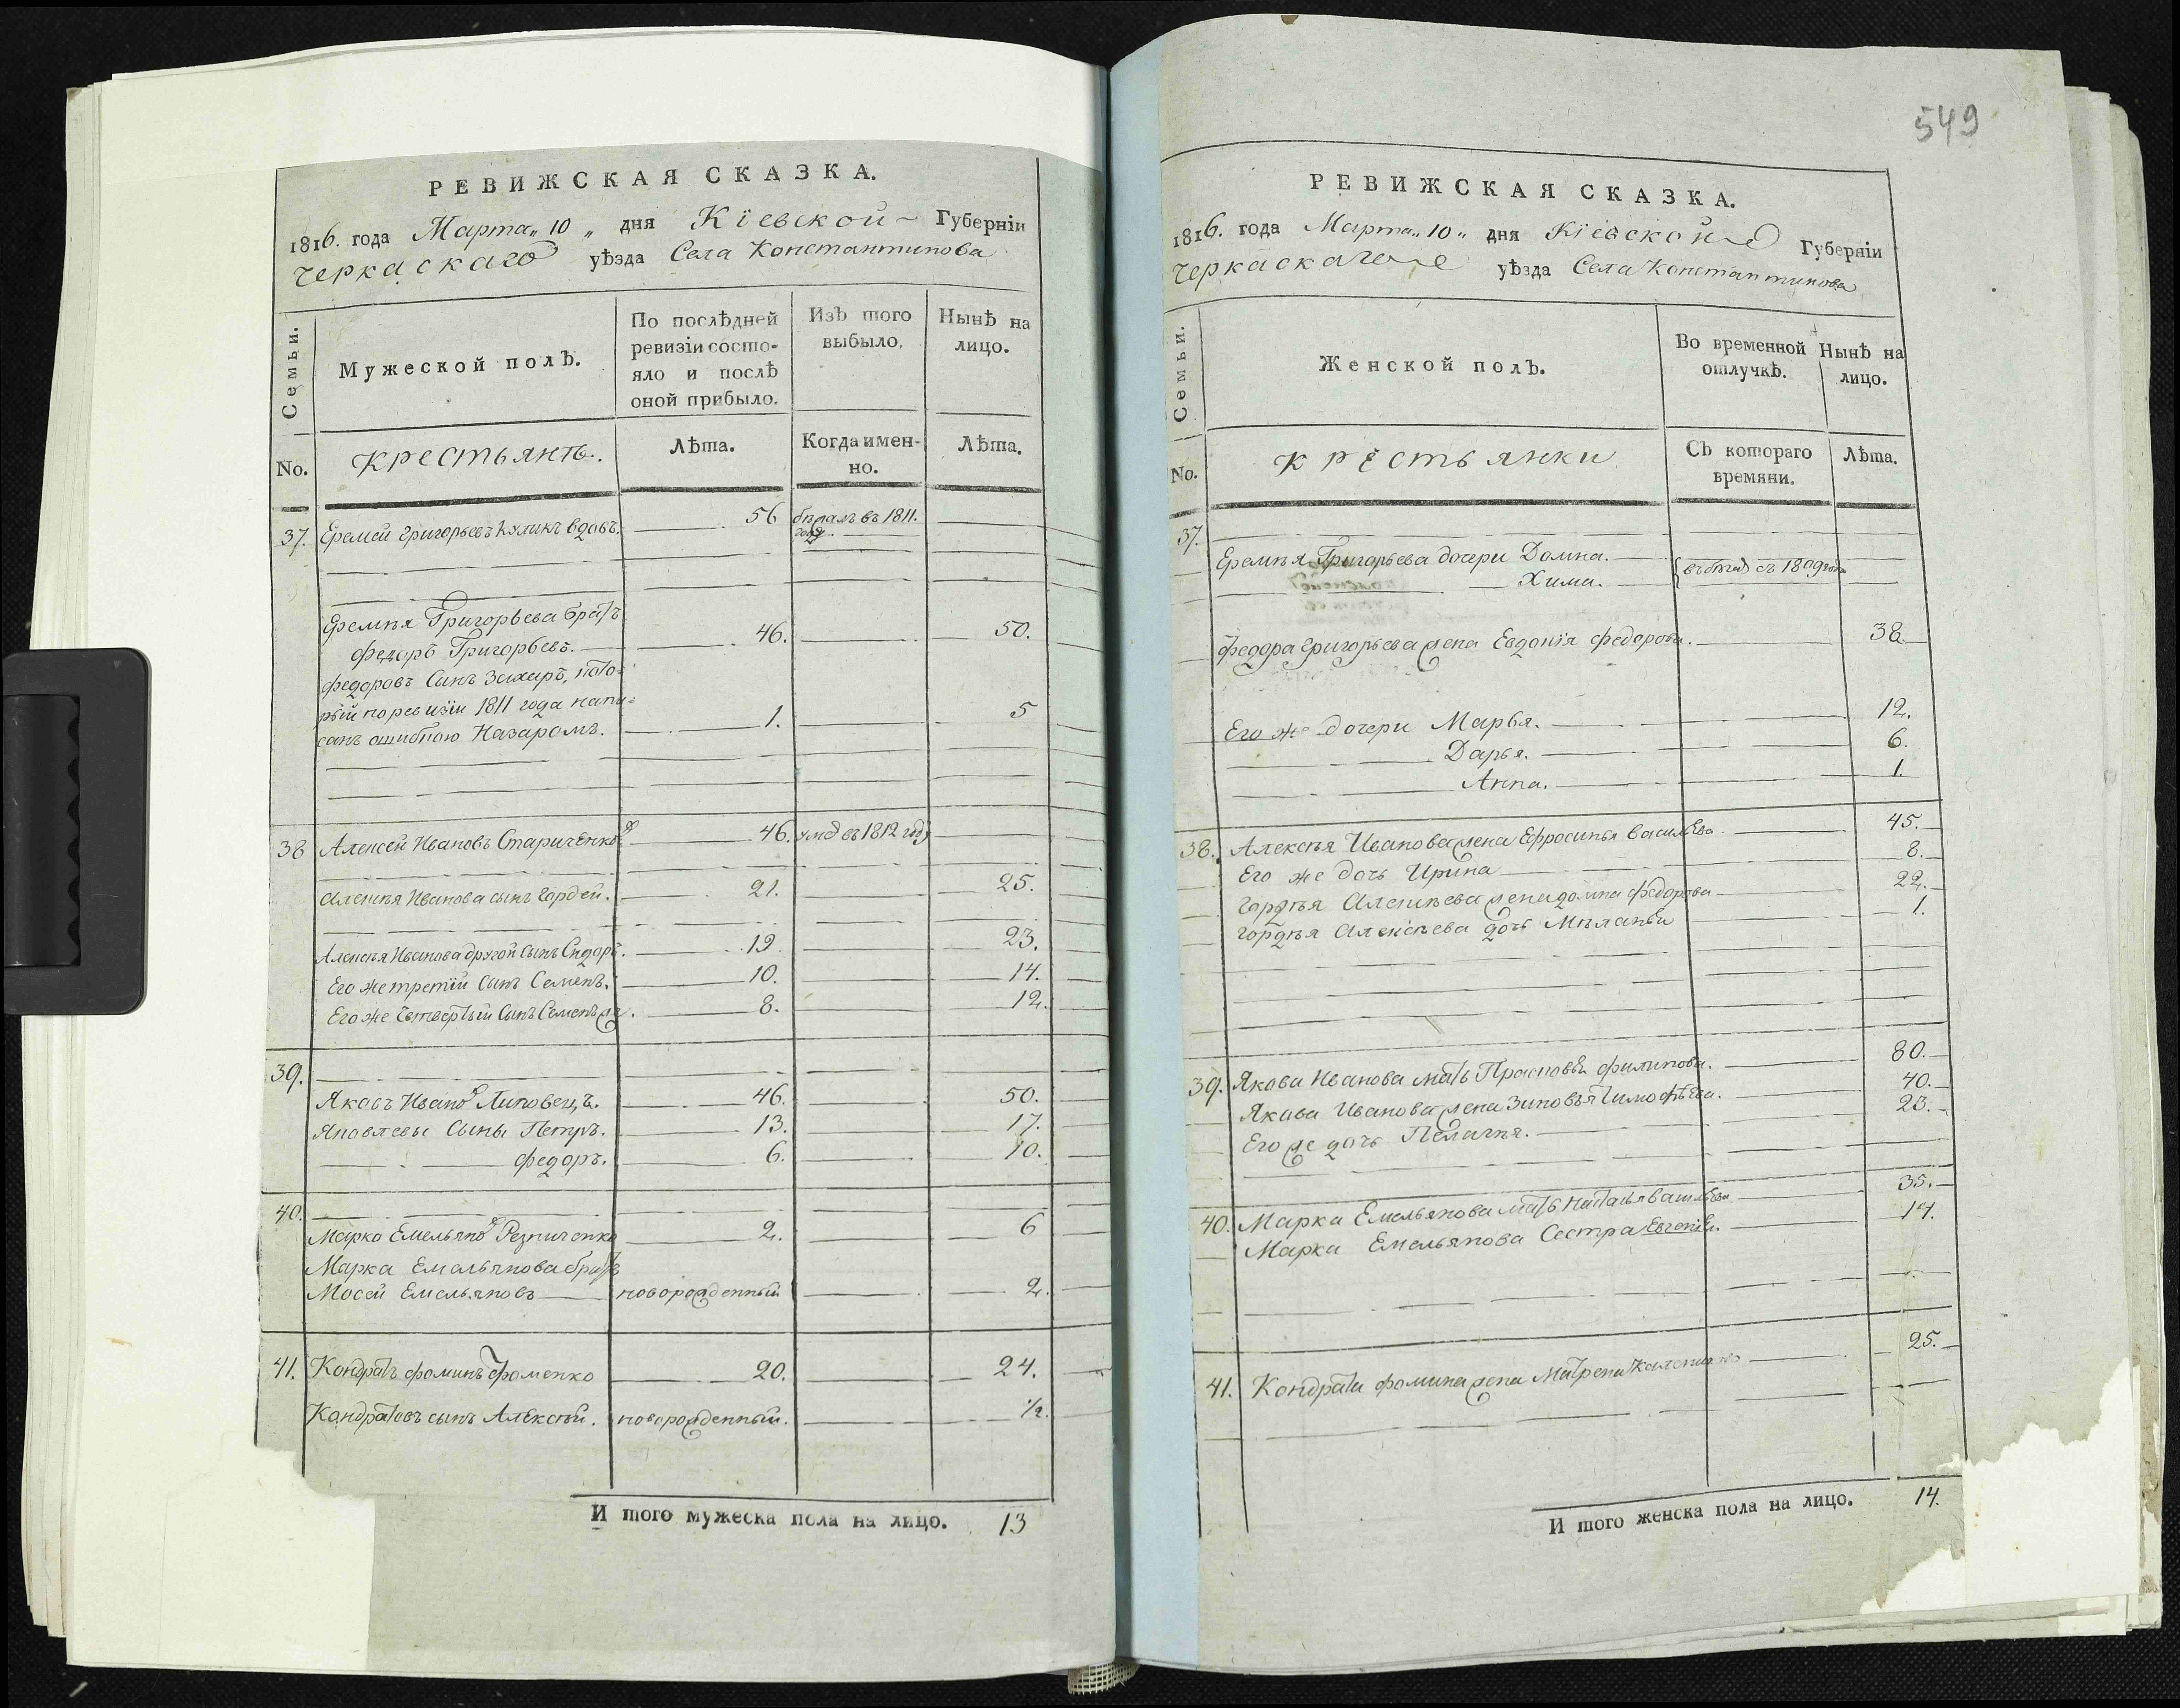 РЕВИЖСКАЯ СКАЗКА.
1816. года Марта „ 10 „ дня Кіевской Губерніи
Черкаскаго уѣзда Села Константинова
Семьи.
Мужеской полъ.
По послѣдней
ревизіи состо-
яло и послѣ
оной прибыло.
Изъ того
выбыло.
Нынѣ на
лицо.
No.
Крестьянъ.
Лѣта.
Когда имен-
но.
Лѣта.
37. Еремей Григорьевъ Куликъ вдовъ. 56 бѣжалъ въ 1811.
году.
Еремѣя Григорьева братъ
Федоръ Григорьевъ. 46. 50.
Федоровъ Сынъ Захаръ, кото-
рый по ревизіи 1811 года напи-
санъ ошибкою Назаромъ. 1. 5
38 Алексей Ивановъ Стариченко 46. умеръ въ 1812 году
Алексѣя Иванова сынъ Гордей. 21. 25.
Алексѣя Иванова другой Сынъ Сидоръ. 19 23.
Его же третій Сынъ Семенъ. 10. 14.
Его же Четвертый Сынъ Семенъ же. 8. 12.
39.
Яковъ Иванов Липовецъ. 46. 50.
Яковлевы Сыны Петръ. 13. 17.
Федоръ. 6. 10.
40.
Марко Емельянов Резниченко 2. 6
Марка Емельянова братъ
Мосей Емельяновъ новорожденный 2.
41. Кондратъ Фоминъ Фоменко 20. 24.
Кондратовъ сынъ Алексѣй. новорожденный. ½.
И того мужеска пола на лицо. 13
549
РЕВИЖСКАЯ СКАЗКА.
1816. года Марта „ 10 „ дня Кіевской Губерніи
Черкаскаго уѣзда Села Константинова
Семьи.
Женской полъ.
Во временной
отлучкѣ.
Нынѣ на
лицо.
No.
Крестьянки
Съ котораго
времяни.
Лѣта.
37.
Еремѣя Григорьева дочери Домна.
Хима. въ бѣгах съ 1809 года
Федора Григорьева жена Евдокія Федорова. 38.
Его же дочери Марья. 12.
Дарья. 6.
Анна. 1.
38. Алексѣя Иванова жена Ефросинья Васильева 45.
Его же дочь Ирина 8.
Гордѣя Алексѣева жена Домна Федорова 22.
Гордѣя Алексѣева дочь Мѣланья 1.
39. Якова Иванова мать Прасковья Филипова. 80.
Якова Иванова жена Зиновья Тимофѣева. 40.
Его же дочь Пелагея. 23.
40. Марка Емельянова мать Наталья Васильева 35.
Марка Емельянова Сестра Евгенія. 17.
41. Кондрата Фомина жена Матрена 25.
И того женска пола на лицо. 14.